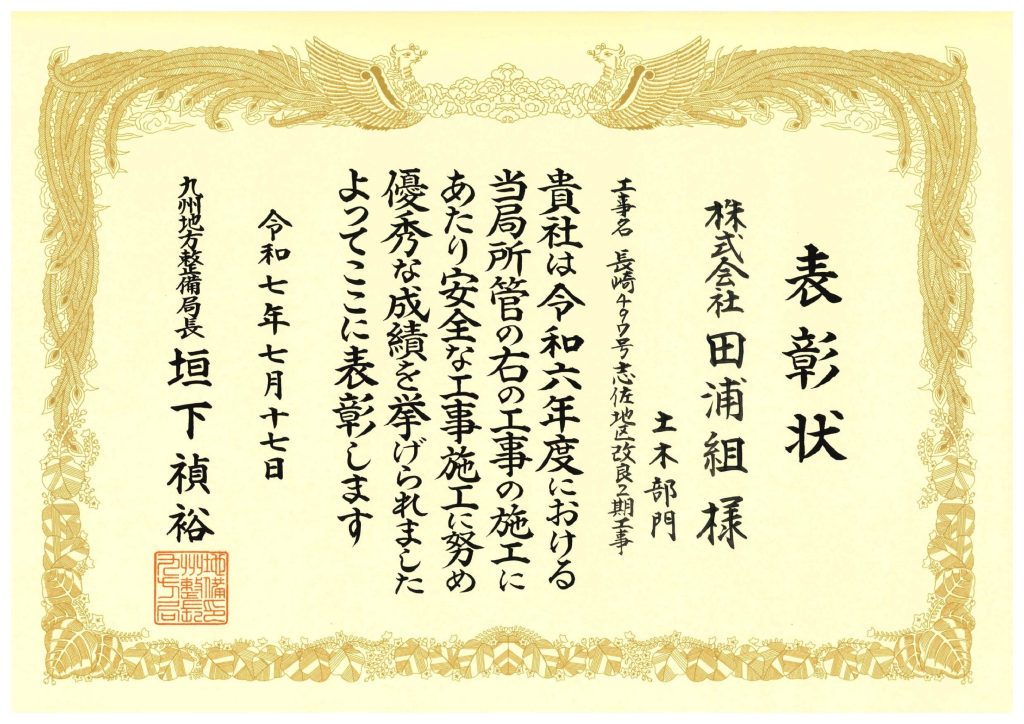 表彰状
株式会社 田浦組 様
土木部門
工事名 長崎497号志佐地区改良2期工事
貴社は令和六年度における
当局所管の右の工事の施工に
あたり安全な工事施工に努め
優秀な成績を挙げられました
よってここに表彰します
令和七年七月十七日
九州地方整備局長 垣下禎裕